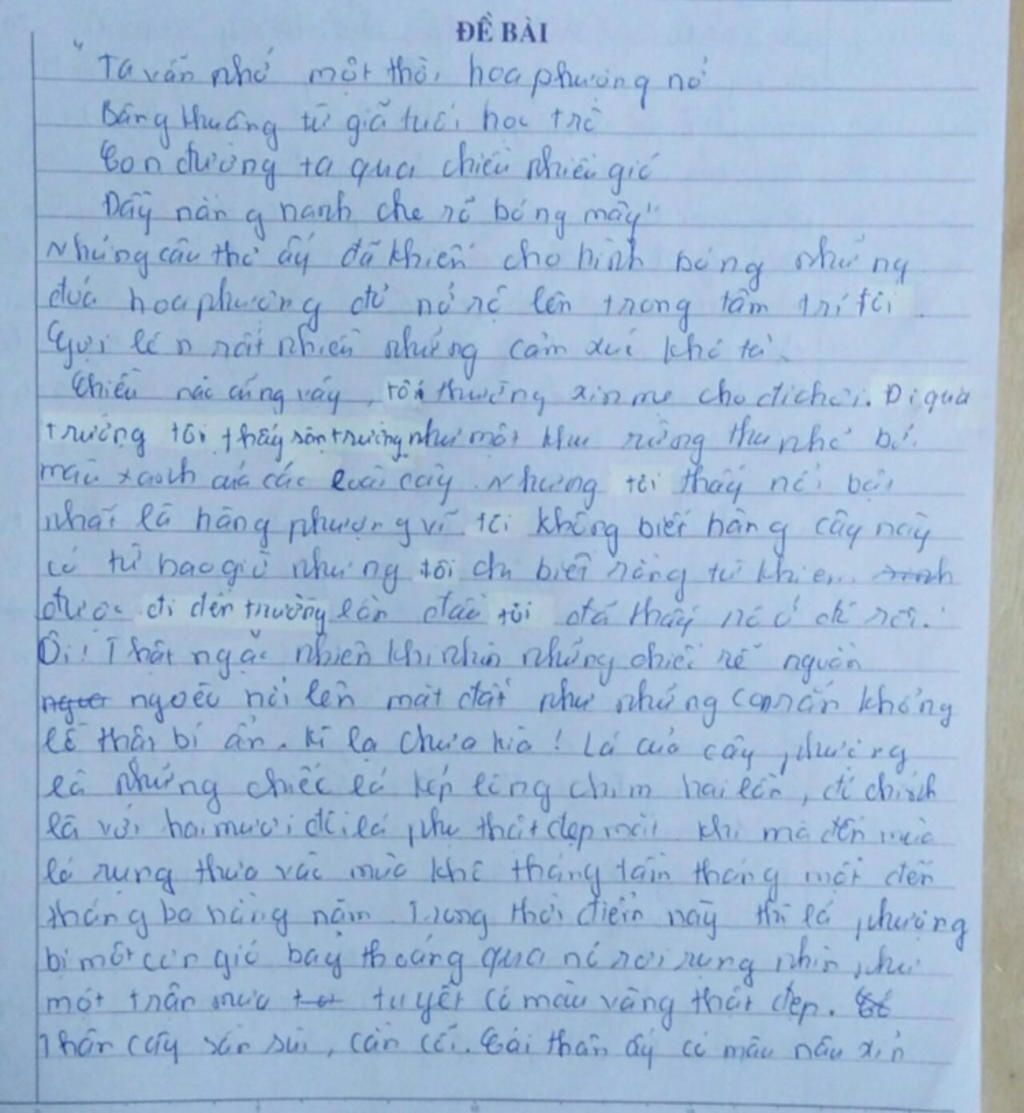 ĐỀ BÀI
"Ta vẫn nhớ một thời hoa phượng nở
Bâng khuâng từ giã tuổi học trò
Con đường ta qua chiều nhiều gió
Dãy nằng nanh che rõ bóng mây"
Những câu thơ ấy đã khiến cho hình bóng những
đoá hoa phượng đỏ nở rộ lên trong tâm trí tôi
Gợi lên rất nhiều những cảm xúc khó tả.
Chiều nào cũng vậy, tôi thường xin mẹ cho đi chơi. Đi qua
trường tôi thấy sân trường như một khu rừng thu nhỏ bởi
màu xanh của các loài cây. Nhưng tôi thấy nổi bật
nhất là hàng phượng vĩ tôi không biết hàng cây này
có từ bao giờ nhưng tôi chỉ biết rằng từ khi em
được đi đến trường lần đầu tôi đã thấy nó ở đó rồi.
Ôi! Thật ngạc nhiên khi nhìn những chiếc rễ nguằn
ngoèo nổi lên mặt đất như những con rắn khổng
lồ thật bí ẩn. Kì lạ chưa kìa! Lá của cây phượng
là những chiếc lá kép lông chim hai lần, đi chính
là với hai mươi đôi lá phụ thật đẹp mắt khi mà đến mùa
lá rụng thưa vào mùa khô tháng tám tháng một đến
tháng ba hằng năm. Trong thời điểm này thì lá phượng
bị một cơn gió bay thoáng qua nó rơi rụng nhìn như
một trận mưa tuyết có màu vàng thật đẹp.
Thân cây sần sùi, cằn cỗi. Cái thân ấy có màu nâu xỉn